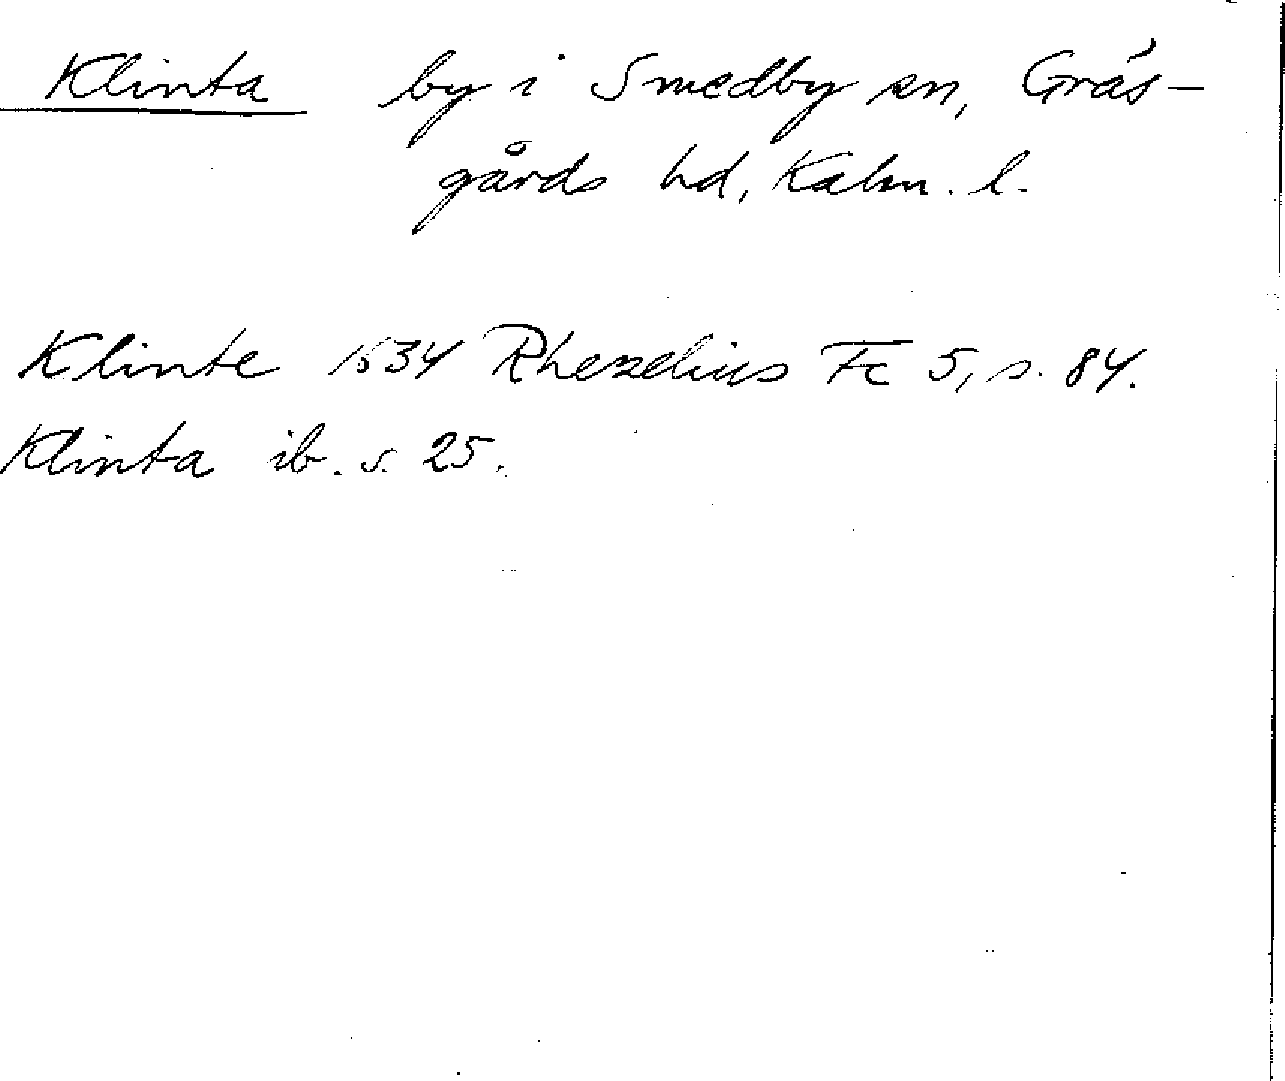 Klinta by i Smedby sn, Gräs-
gårds hd, Kalm. l.
Klinte 1634 Rhezelius Fc 5, s. 84.
Klinta ib. s. 25.